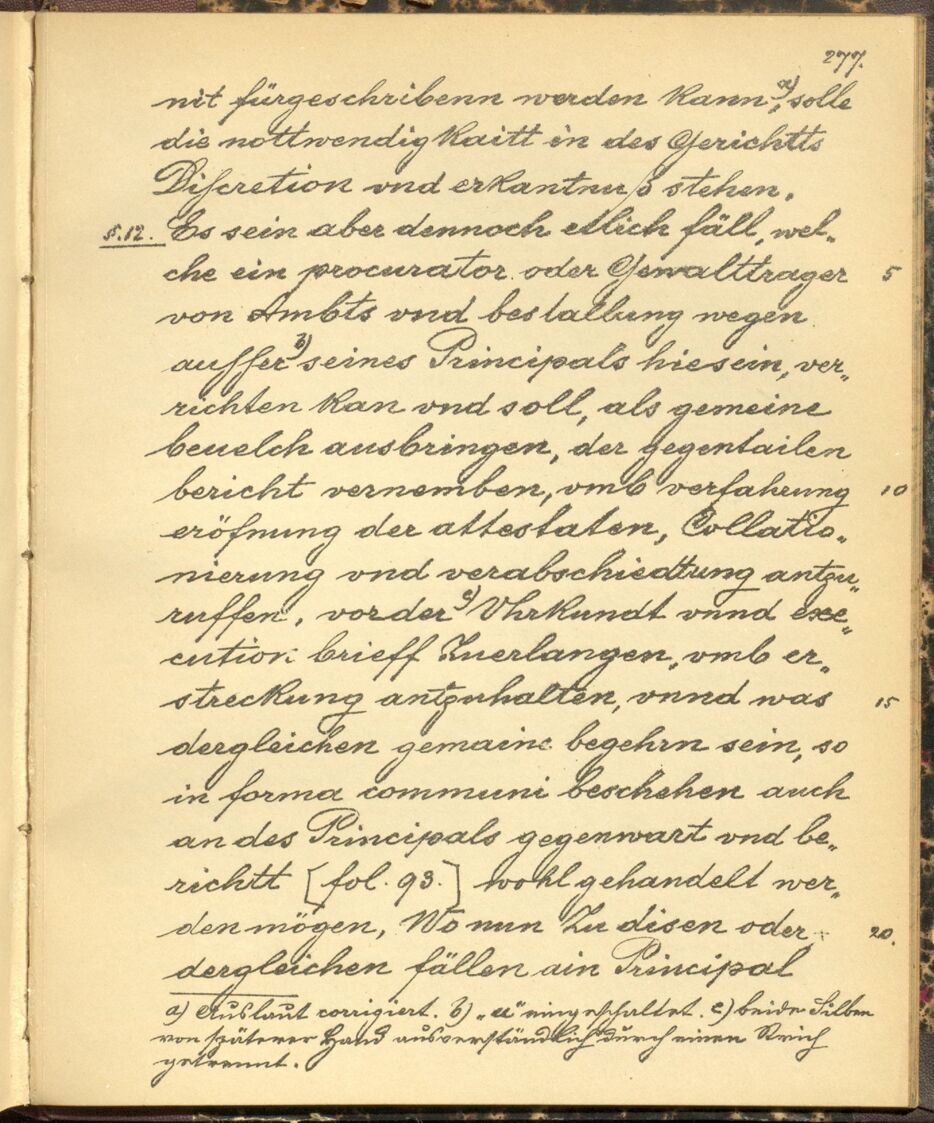 277.
nit fürgeschribenn werden kann,a) solle
die nottwendigkaitt in des Gerichtts
Discretion vnd erkantnuß stehen.
§.12. Es sein aber dennoch etlich fäll, wel„
che ein procurator oder Gewalttrager 5
von Ambts vnd bestallung wegen
ausser b) seines Principals hiesein, ver„
richten kan vnd soll, als gemeine
beuelch ausbringen, der gegentailen
bericht vernemben, vmb verfahrung 10
eröfnung der attestaten, Collatio„
nierung vnd verabschiedtung antzu„
ruffen, vor der c) Vhrkundt vnnd exe„
cution brieff Zuerlangen, vmb er„
streckung antzuhalten, vnnd was 15
dergleichen gemaine begehrn sein, so
in forma communi beschehen auch
an des Principals gegenwart vnd be„
richtt [fol. 93.] wohl gehandelt wer„
den mögen, Wo nun Zu disen oder 20.
dergleichen fällen ain Principal
a) Auslaut corrigiert. b) „u" eingeschaltet. c) beide Silben
von späterer Hand ausverständlich durch einen Strich
getrennt.